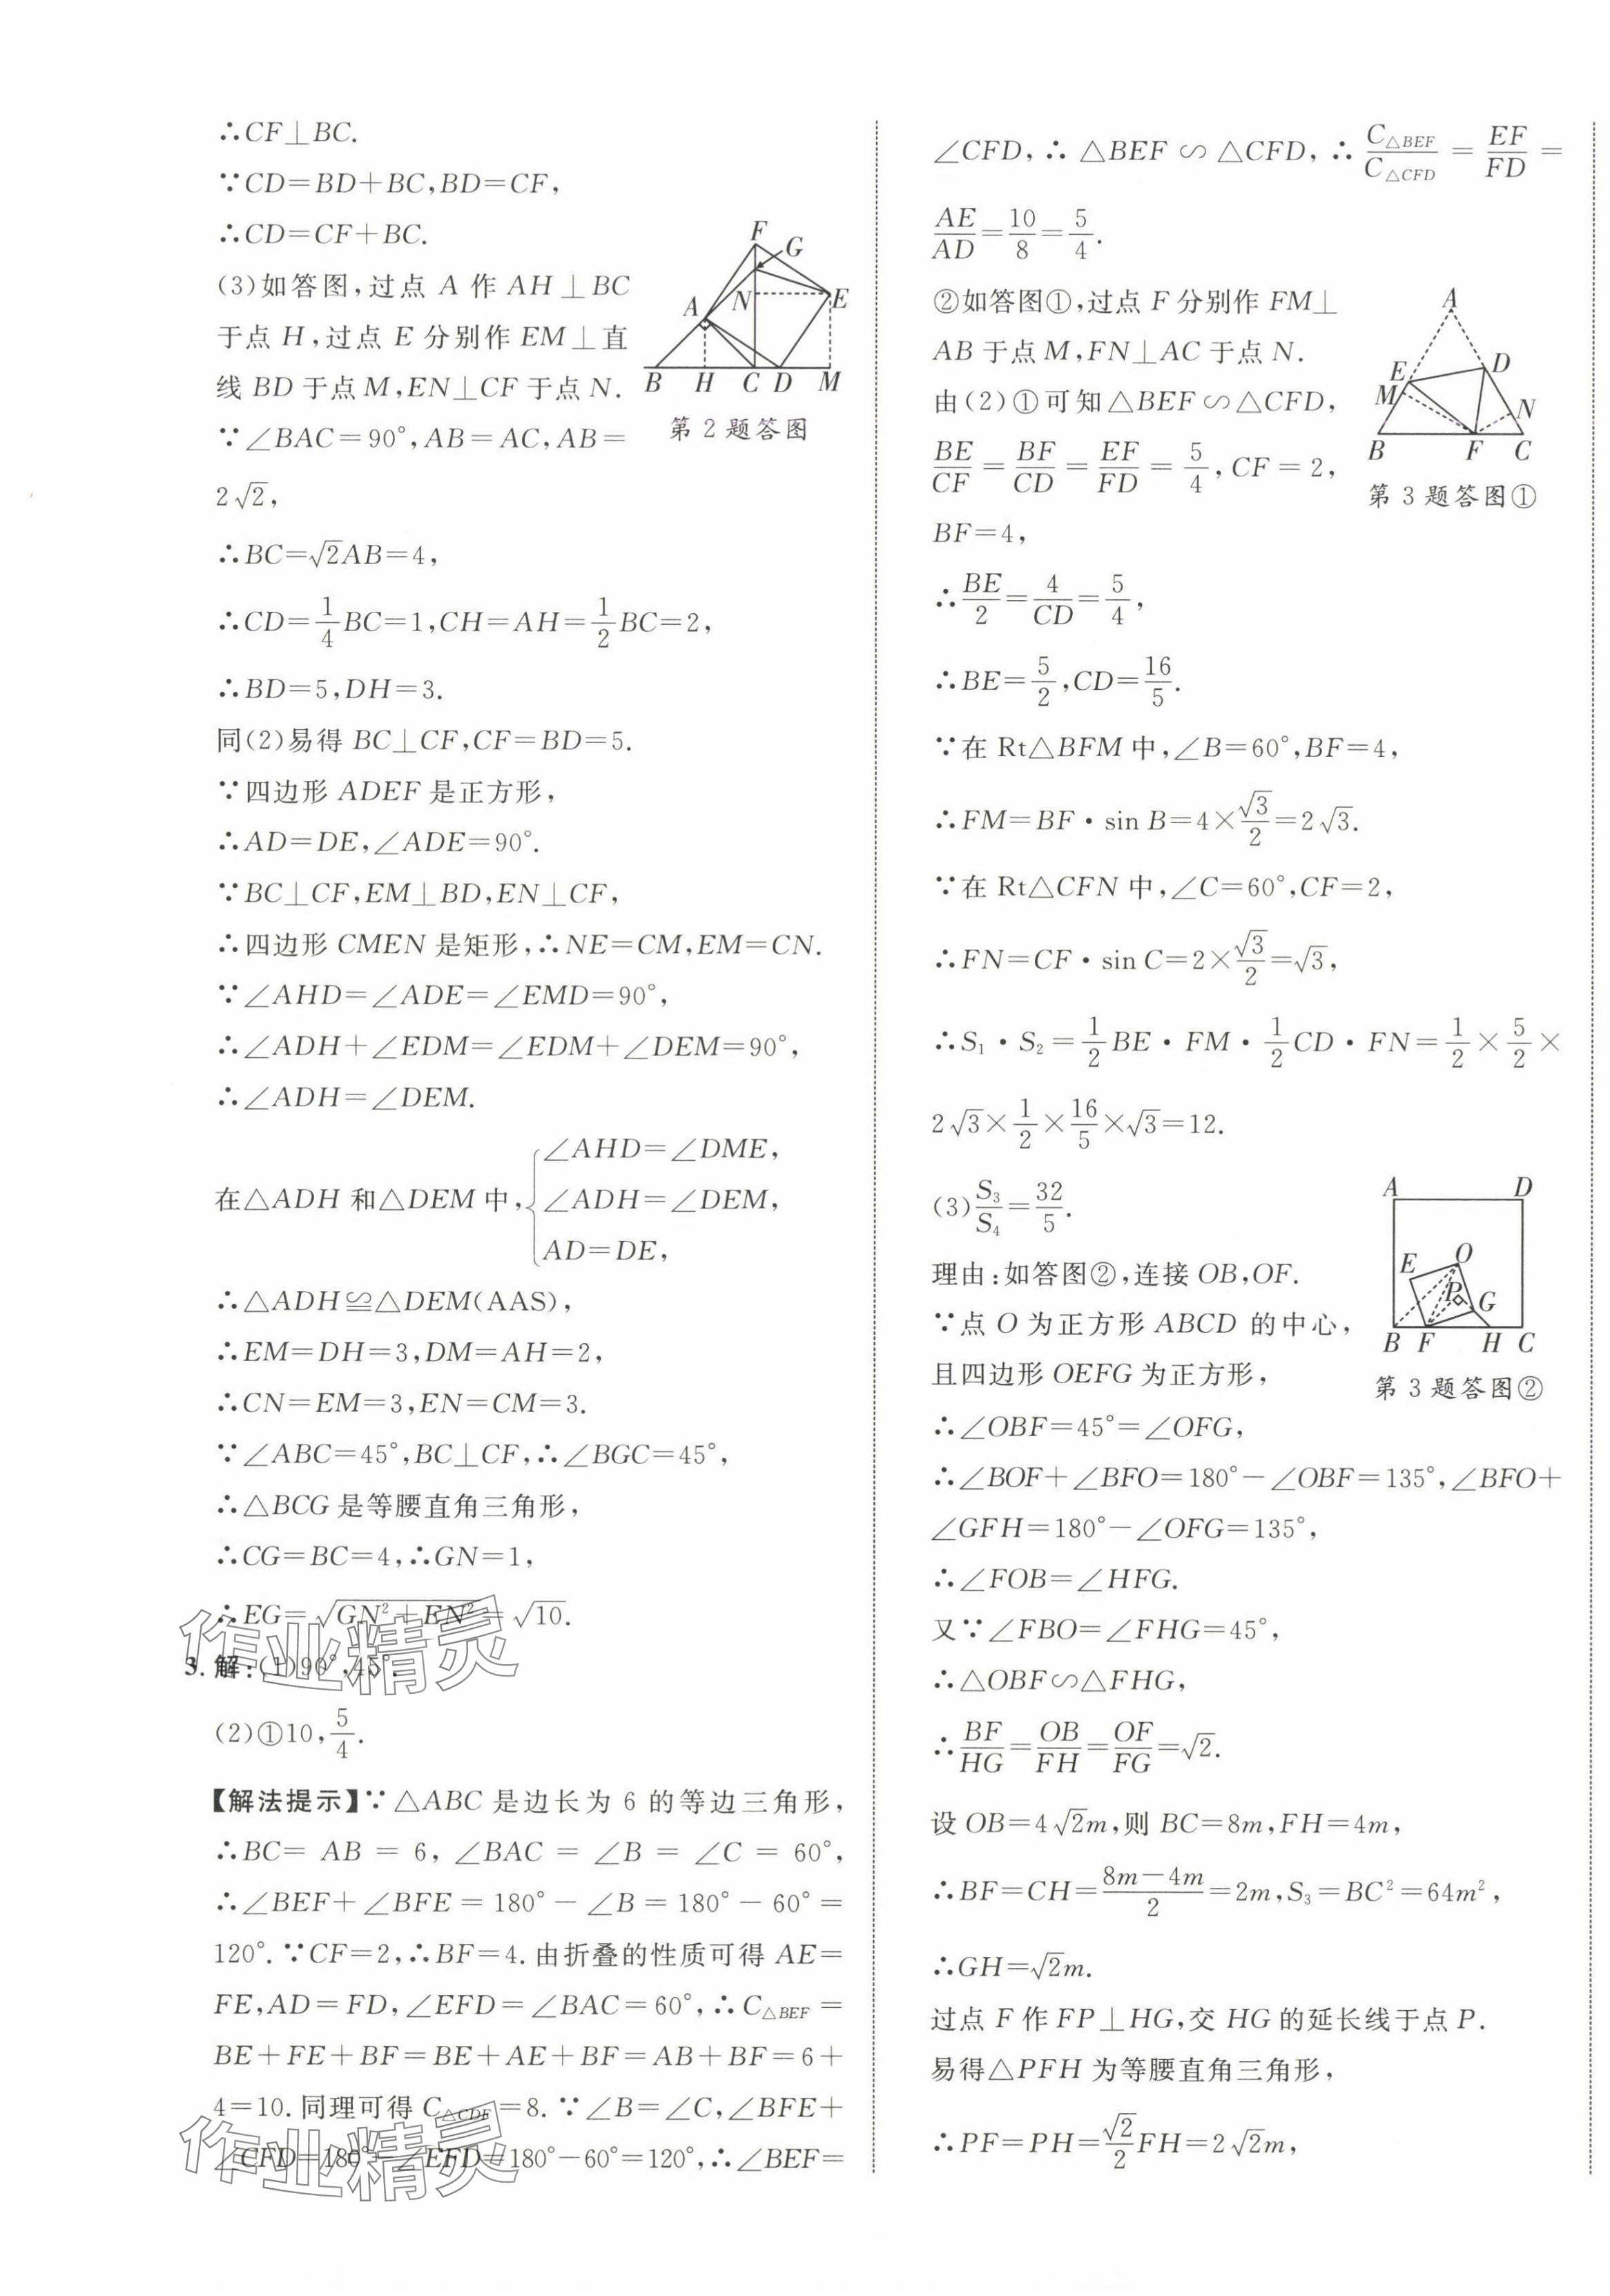 ∴CF⊥BC.
∵CD=BD+BC,BD=CF,
∴CD=CF+BC.
(3)如答图,过点 A 作 AH⊥BC
于点 H,过点 E 分别作 EM⊥直
线 BD 于点 M,EN⊥CF 于点 N.
∵∠BAC=90°,AB=AC,AB=
2√2,
F
G
A
N
E
B H C D M
第 2 题答图
∴BC=√2AB=4,
∴CD=1/4BC=1,CH=AH=1/2BC=2,
∴BD=5,DH=3.
同(2)易得 BC⊥CF,CF=BD=5.
∵四边形 ADEF 是正方形,
∴AD=DE,∠ADE=90°.
∵BC⊥CF,EM⊥BD,EN⊥CF,
∴四边形 CMEN 是矩形,∴NE=CM,EM=CN.
∵∠AHD=∠ADE=∠EMD=90°,
∴∠ADH+∠EDM=∠EDM+∠DEM=90°,
∴∠ADH=∠DEM.
在△ADH 和△DEM 中,{∠AHD=∠DME,
∠ADH=∠DEM,
AD=DE,
∴△ADH≌△DEM(AAS),
∴EM=DH=3,DM=AH=2,
∴CN=EM=3,EN=CM=3.
∵∠ABC=45°,BC⊥CF,∴∠BGC=45°,
∴△BCG 是等腰直角三角形,
∴CG=BC=4,∴GN=1,
∴EG=√(GN²+EN²)=√10.
3. 解:(1)90°,45°.
(2)①10,5/4.
【解法提示】∵△ABC 是边长为 6 的等边三角形,
∴BC= AB = 6, ∠BAC = ∠B = ∠C = 60°,
∴∠BEF+∠BFE=180°-∠B=180°-60°=
120°.∵CF=2,∴BF=4.由折叠的性质可得 AE=
FE,AD=FD,∠EFD=∠BAC=60°,∴C△BEF=
BE+FE+BF=BE+AE+BF=AB+BF=6+
4=10.同理可得 C△CDF=8.∵∠B=∠C,∠BFE+
∠CFD=180°-∠EFD=180°-60°=120°,∴∠BEF=
作业精灵
作业精灵
∠CFD,∴△BEF∽△CFD,∴C△BEF/C△CFD=EF/FD=
AE/AD=10/8=5/4.
②如答图①,过点 F 分别作 FM⊥
AB 于点 M,FN⊥AC 于点 N.
由(2)①可知△BEF∽△CFD,
BE/CF=BF/CD=EF/FD=5/4,CF=2,
BF=4,
A
E
D
M
N
B F C
第 3 题答图①
∴BE/2=4/CD=5/4,
∴BE=5/2,CD=16/5.
∵在 Rt△BFM 中,∠B=60°,BF=4,
∴FM=BF·sin B=4×√3/2=2√3.
∵在 Rt△CFN 中,∠C=60°,CF=2,
∴FN=CF·sin C=2×√3/2=√3,
∴S₁·S₂=1/2BE·FM·1/2CD·FN=1/2×5/2×
2√3×1/2×16/5×√3=12.
(3)S₃/S₄=32/5.
理由:如答图②,连接 OB,OF.
∵点 O 为正方形 ABCD 的中心,
且四边形 OEFG 为正方形,
A D
E O
P
G
B F H C
第 3 题答图②
∴∠OBF=45°=∠OFG,
∴∠BOF+∠BFO=180°-∠OBF=135°,∠BFO+
∠GFH=180°-∠OFG=135°,
∴∠FOB=∠HFG.
又∵∠FBO=∠FHG=45°,
∴△OBF∽△FHG,
∴BF/HG=OB/FH=OF/FG=√2.
设 OB=4√2m,则 BC=8m,FH=4m,
∴BF=CH=(8m-4m)/2=2m,S₃=BC²=64m²,
∴GH=√2m.
过点 F 作 FP⊥HG,交 HG 的延长线于点 P.
易得△PFH 为等腰直角三角形,
∴PF=PH=√2/2FH=2√2m,